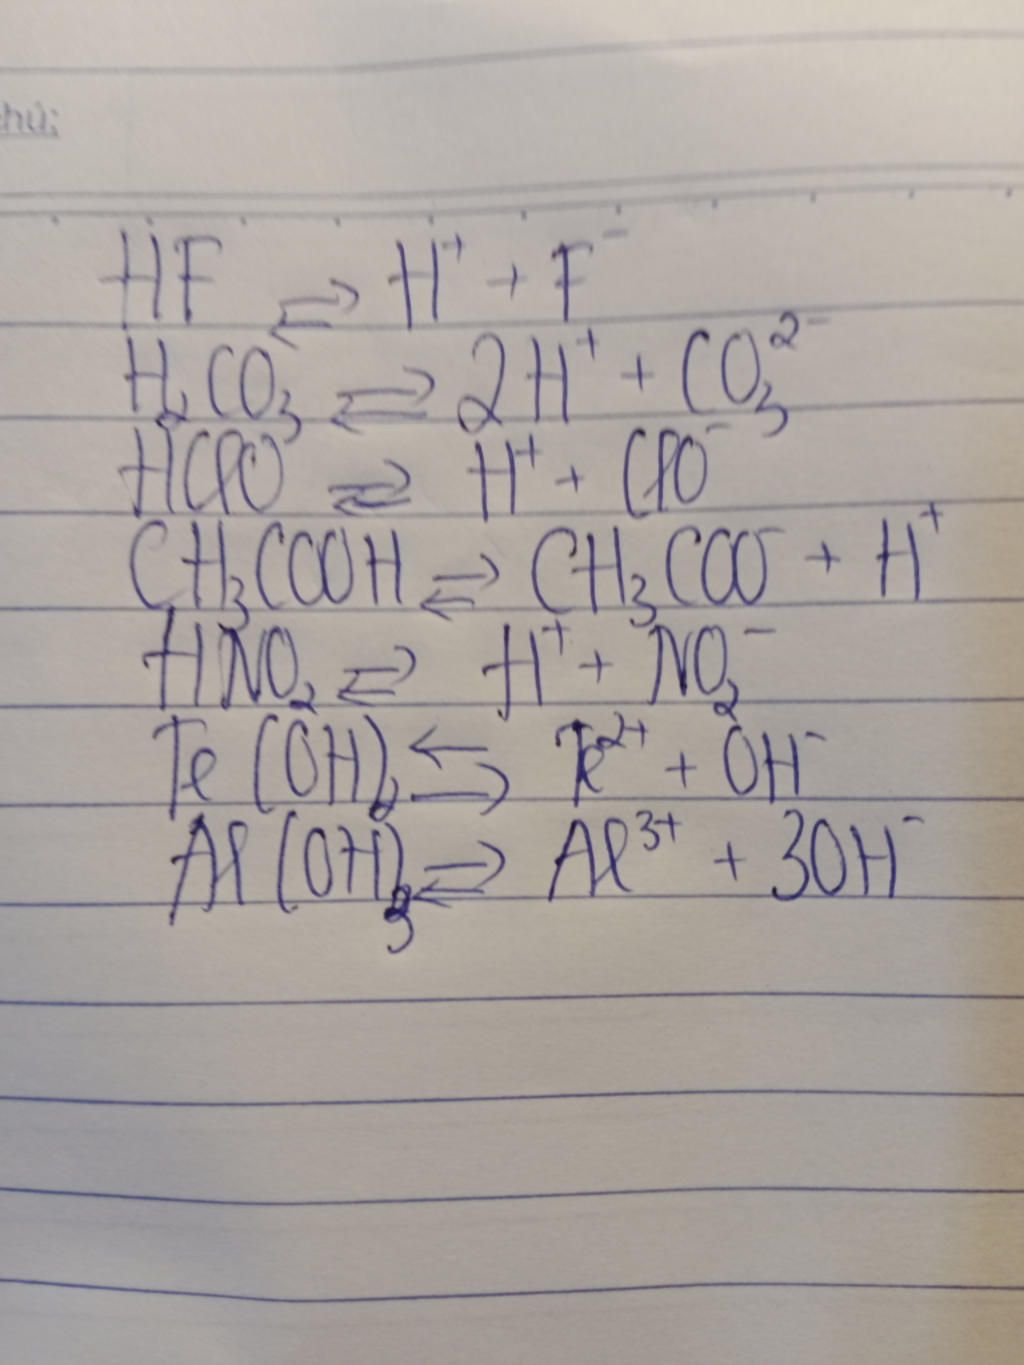 chú:
HF ⇌ H⁺ + F⁻
H₂CO₃ ⇌ 2H⁺ + CO₃²⁻
HClO ⇌ H⁺ + ClO⁻
CH₃COOH ⇌ CH₃COO⁻ + H⁺
HNO₂ ⇌ H⁺ + NO₂⁻
Fe(OH)₂ ⇌ Fe²⁺ + OH⁻
Al(OH)₃ ⇌ Al³⁺ + 3OH⁻